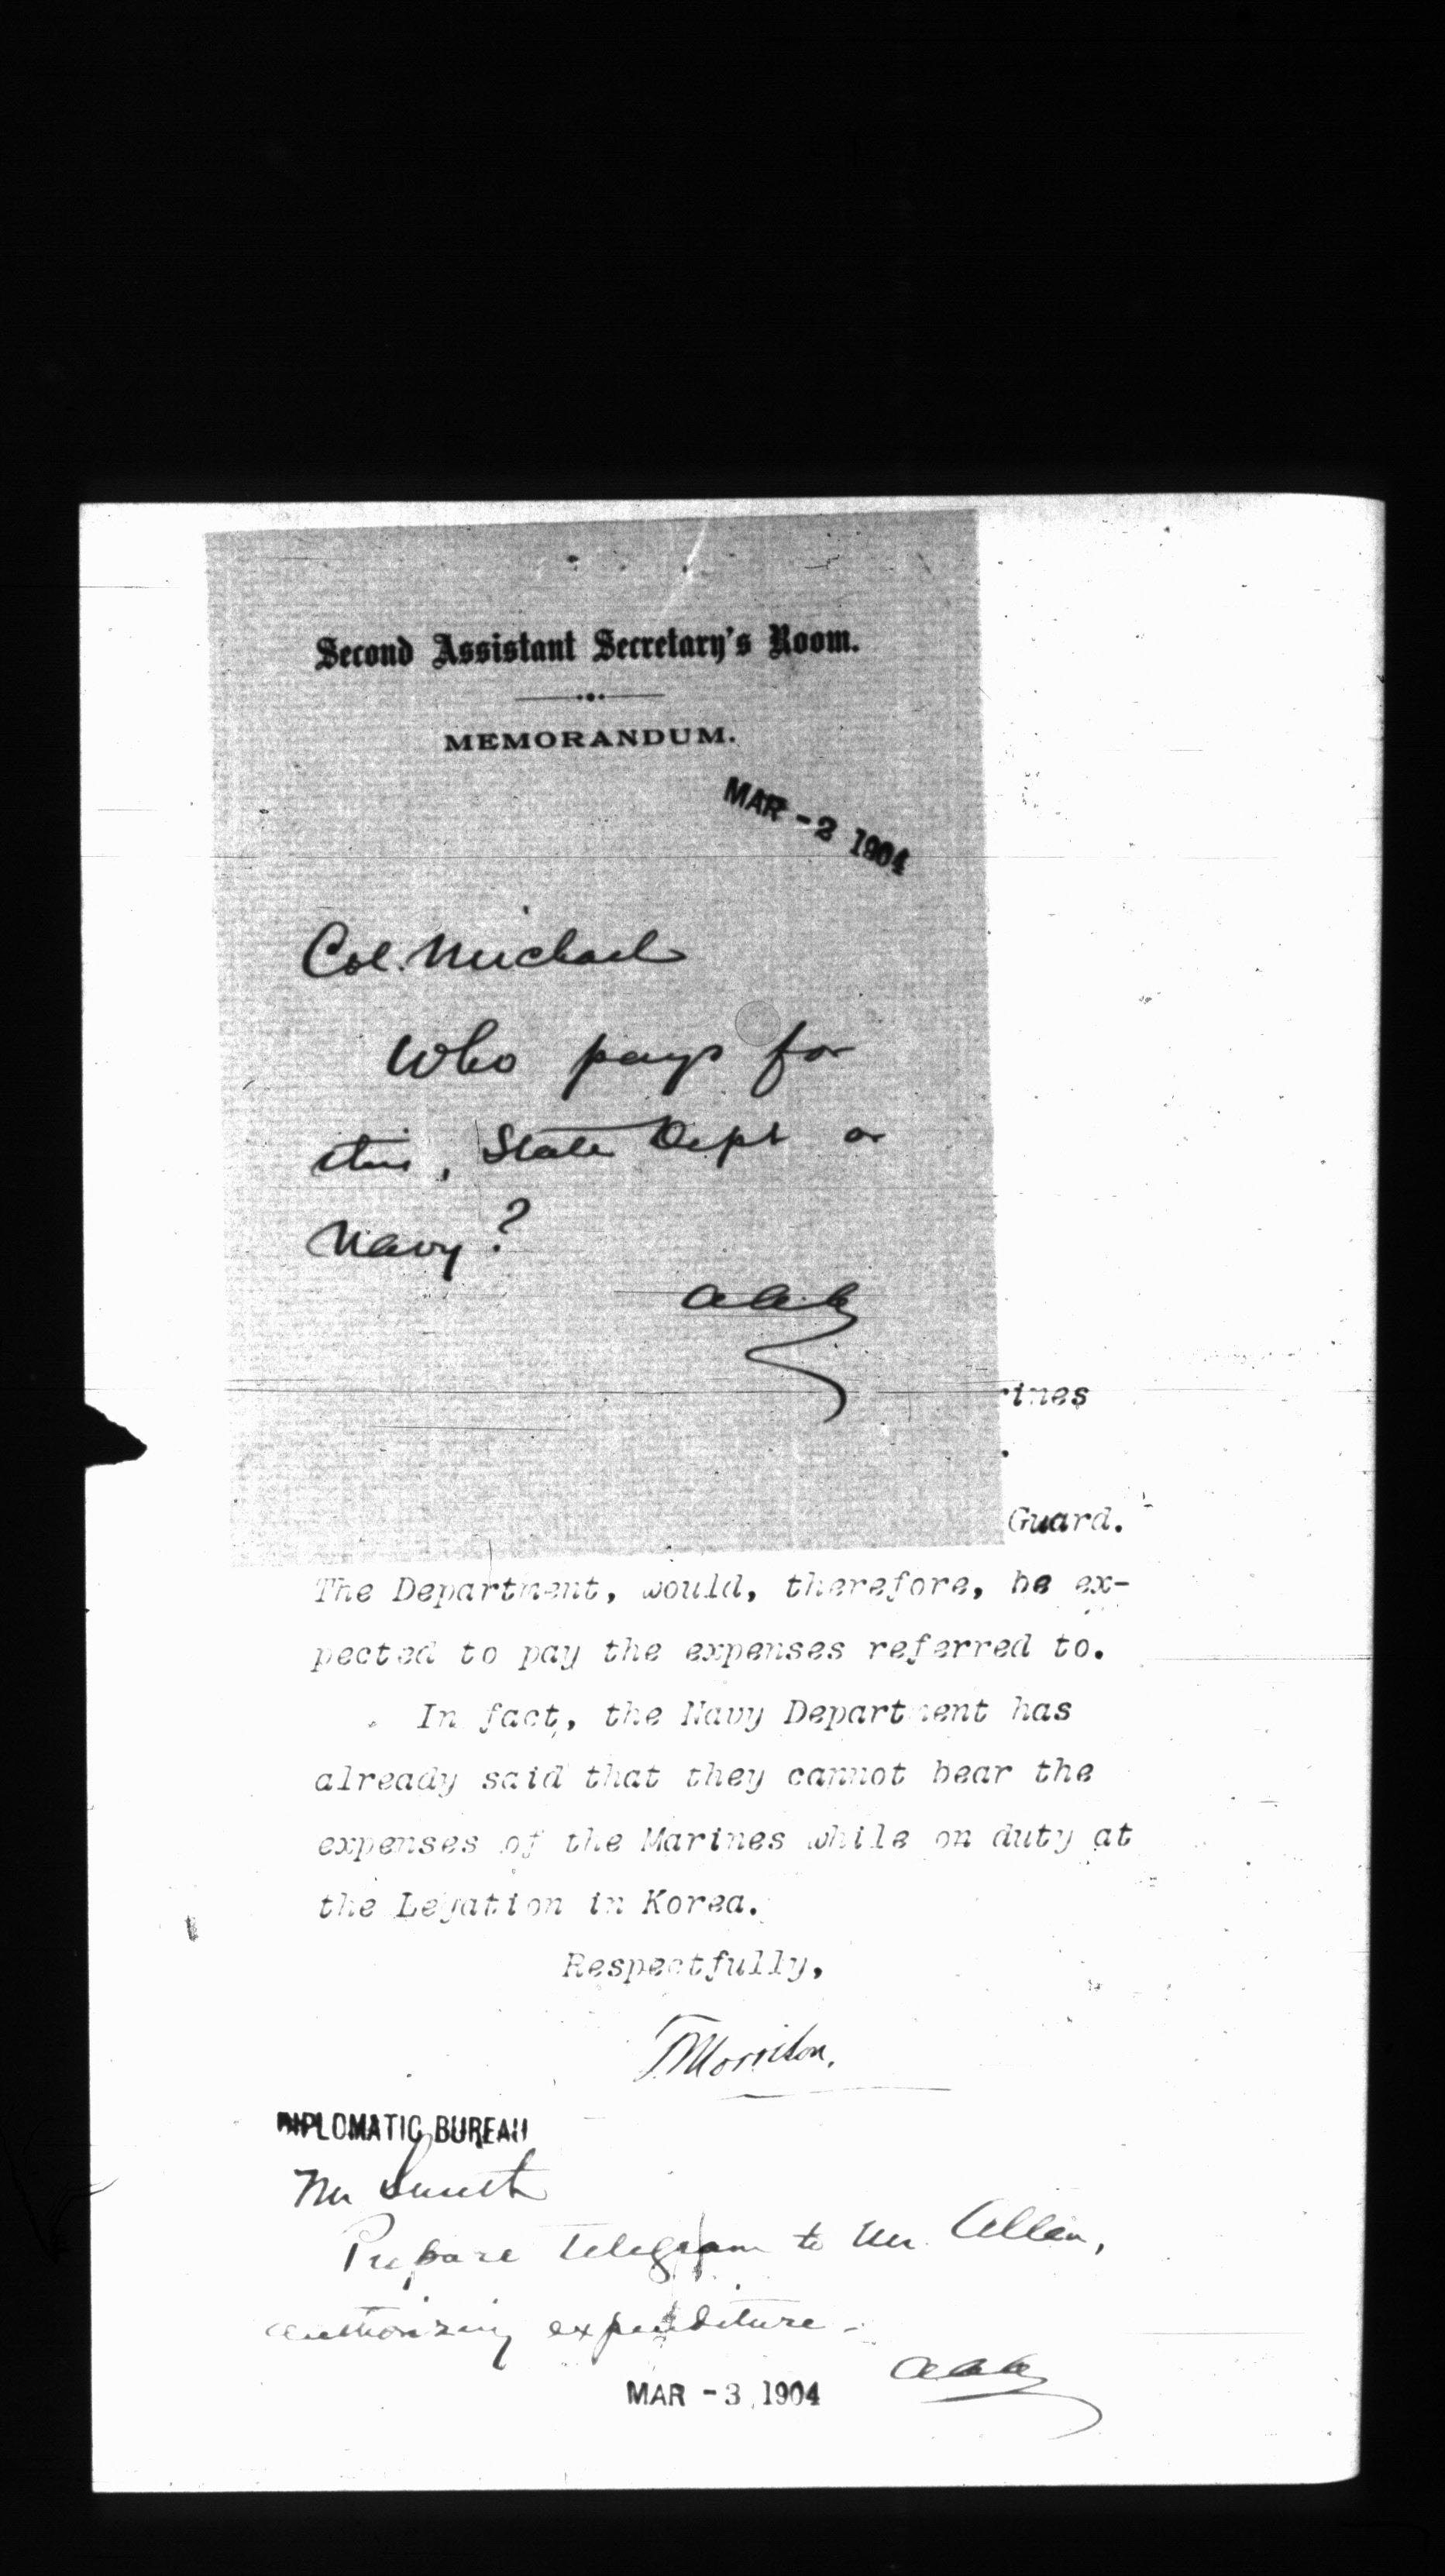 Second Assistant Secretary's Room.
MEMORANDUM.
MAR - 2 1904
Col. Michael
Who pays for
this, State Dept or
Navy?
AAA
rines
.
Guard.
The Department, would, therefore, be ex-
pected to pay the expenses referred to.
In fact, the Navy Department has
already said that they cannot bear the
expenses of the Marines while on duty at
the Legation in Korea.
Respectfully,
T Morrison.
DIPLOMATIC BUREAU
Mr Smith
Prepare telegram to Mr. Allen,
authorizing expenditure -
AAA
MAR - 3 1904